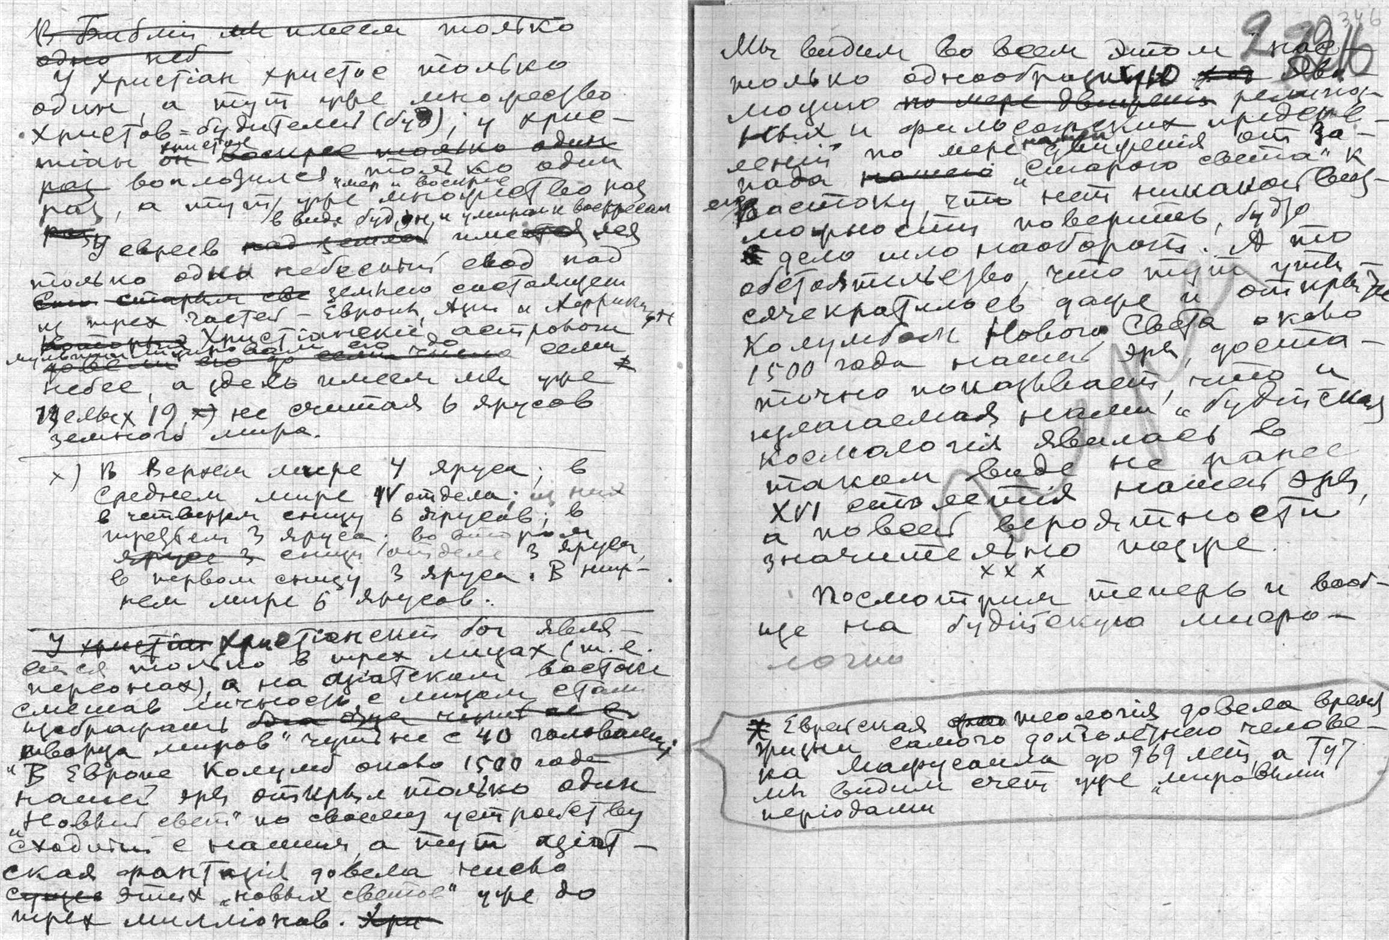 В Библии мы имеем только
одно неб
У христіан христос только
один, а тут уже множество
христов-будителей (буд); у хрис-
тіан христос он воскрес только один
раз воплотился только один
умер и воскрес
раз, а тут уже множество раз
в виде будды, и умирал и воскресал
У евреев над землей имеется
только один небесный свод над
старым све земнего состоящем
из трех частей – Европы, Азии и Африки,
который Христіанские астрономы
его до семи
небес, а здесь имеем мы уже
целых 19, х) не считая 6 ярусов
земного мира.
х) В Верхнем мире 4 яруса; в
среднем мире IV отдела; из них
в четвертом снизу 6 ярусов; в
третьем 3 яруса; во втором
ярусе 3 снизу отделе 3 яруса,
в первом снизу 3 яруса. В ниж-
нем мире 6 ярусов.
У христіан Христіанский бог явля
ется только в трех лицах (т.е.
персонах), а на азіатском востоке
смешав личность с лицом стали
изображать
творца миров" чуть не с 40 головами
"В Европе Колумб около 1500 года
нашей эры открыл только один
"Новый свет" по своему устройству
сходный с нашим, а тут азіат-
ская фантазія довела число
этих "новых светов" уже до
трех миллионов. Хри
346
Мы видим во всем этом нас-
только однообразную эво
люцию по мере движения религіоз-
ных и философских представ-
лений по мере движения от за-
пада нашего "Старого света" к
его востоку, что нет никакой воз-
можности поверить, будто
дело шло наоборот. А то
обстоятельство, что тут уже
сячекратилось даже и открытие
Колумбом Нового Света около
1500 года нашей эры, доста-
точно показывает, что и
излагаемая нами "буддійская
космологія явилась в
таком виде не ранее
XVI столетія нашей эры,
а по всей вероятности
значительно позже.
х х х
Посмотрим теперь и вооб-
ще на буддійскую миро-
логию
х Еврейская теологія довела время
жизни самого долголетнего челове-
ка Мафусаила до 969 лет, а тут
мы видим счет уже "мировыми
періодами